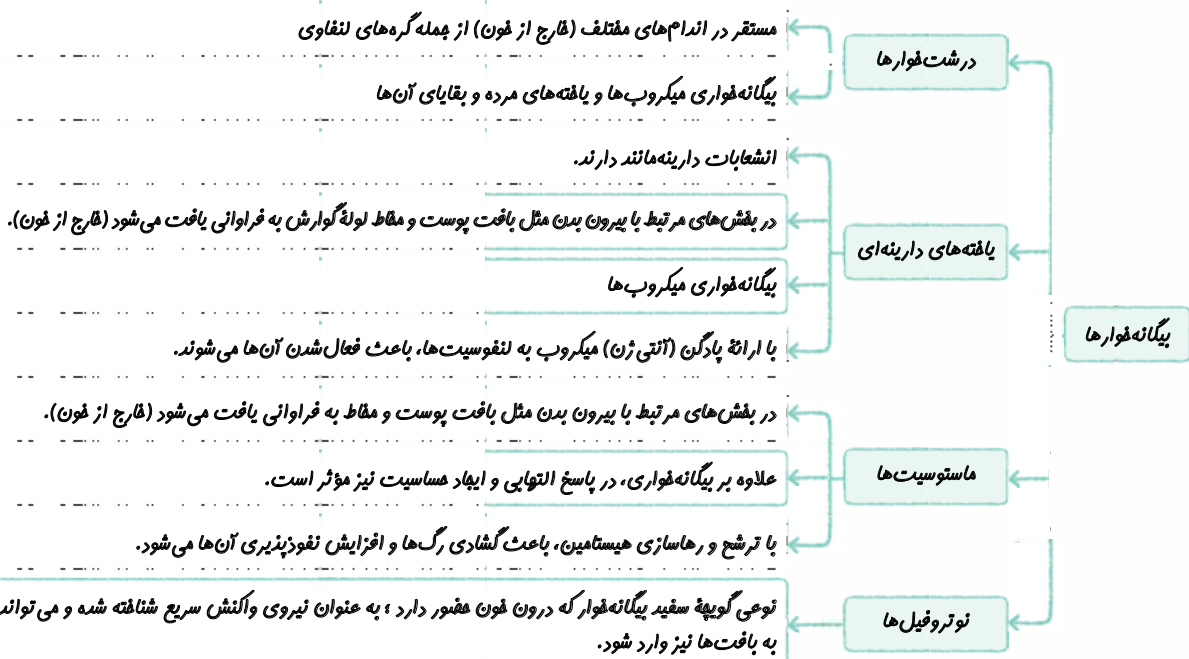 بیگانه‌خوارها
درشت‌خوارها
مستقر در اندام‌های مختلف (خارج از خون) از جمله گره‌های لنفاوی
بیگانه‌خواری میکروب‌ها و یاخته‌های مرده و بقایای آن‌ها
یاخته‌های دارینه‌ای
انشعابات دارینه‌مانند دارند.
در بخش‌های مرتبط با بیرون بدن مثل بافت پوست و مخاط لولهٔ گوارش به فراوانی یافت می‌شود (خارج از خون).
بیگانه‌خواری میکروب‌ها
با ارائهٔ پادگن (آنتی‌ژن) میکروب به لنفوسیت‌ها، باعث فعال‌شدن آن‌ها می‌شوند.
ماستوسیت‌ها
در بخش‌های مرتبط با بیرون بدن مثل بافت پوست و مخاط به فراوانی یافت می‌شود (خارج از خون).
علاوه بر بیگانه‌خواری، در پاسخ التهابی و ایجاد حساسیت نیز مؤثر است.
با ترشح و رهاسازی هیستامین، باعث گشادی رگ‌ها و افزایش نفوذپذیری آن‌ها می‌شود.
نوتروفیل‌ها
نوعی گویچهٔ سفید بیگانه‌خوار که درون خون حضور دارد ؛ به عنوان نیروی واکنش سریع شناخته شده و می‌تواند
به بافت‌ها نیز وارد شود.